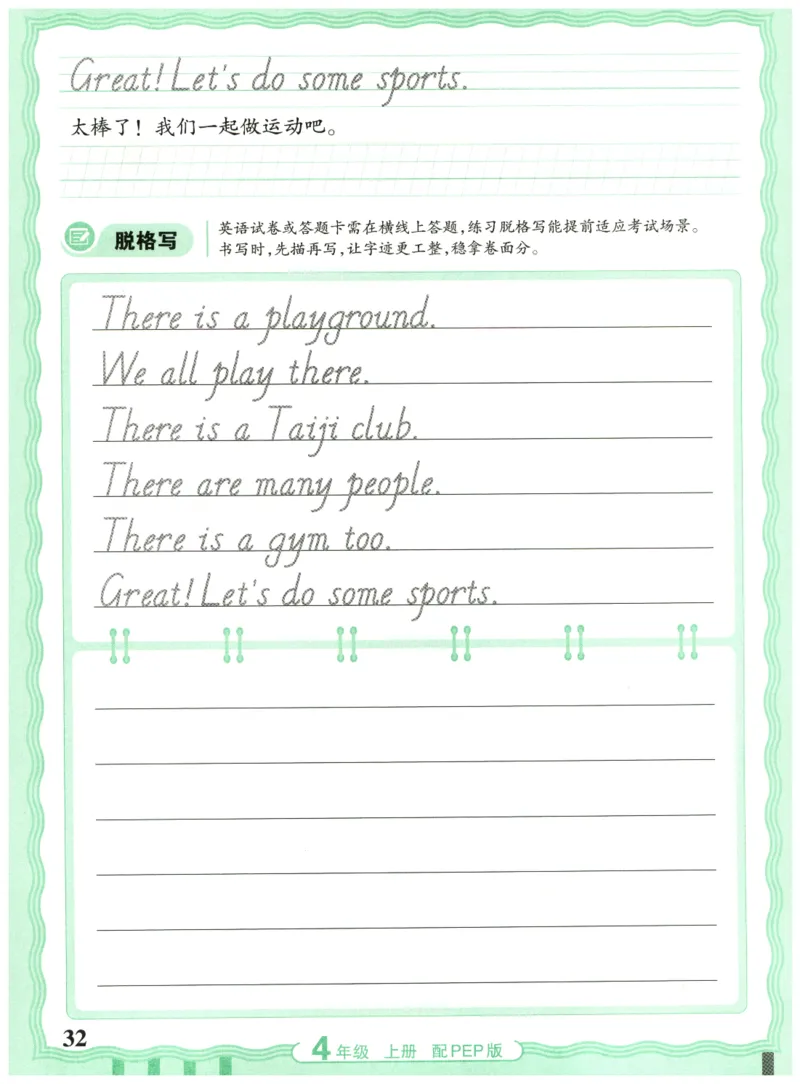 Great! Let's do some sports.
太棒了！我们一起做运动吧。
脱格写
英语试卷或答题卡需在横线上答题,练习脱格写能提前适应考试场景。
书写时,先描再写,让字迹更工整,稳拿卷面分。
There is a playground.
We all play there.
There is a Taiji club.
There are many people.
There is a gym too.
Great! Let's do some sports.
32
4年级 上册 配PEP版